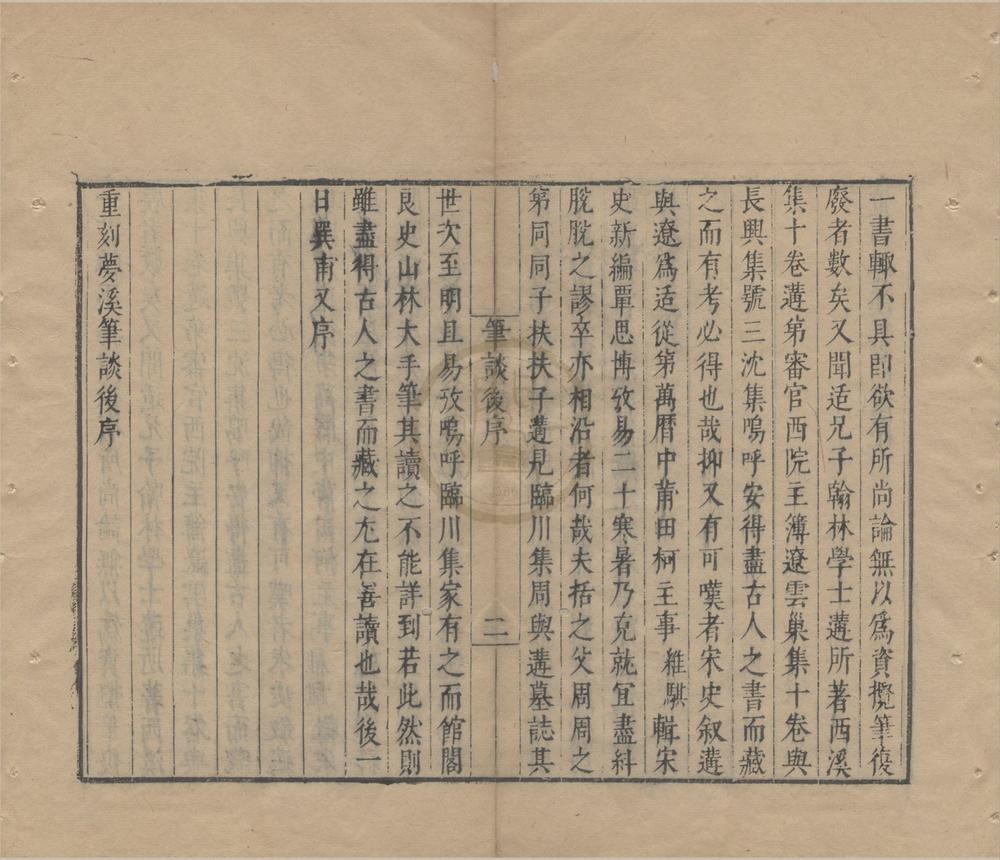 一書輙不具即欲有所尚論無以爲資攬筆復
廢者數矣又聞适兄子翰林學士遘所著西溪
集十卷遘弟審官西院主簿遼雲巢集十卷與
長興集號三沈集嗚呼安得盡古人之書而藏
之而有考必得也哉抑又有可嘆者宋史叙遘
與遼爲适從弟萬曆中莆田柯主事維騏輯宋
史新編覃思博攷易二十寒暑乃克就冝盡糾
脫脫之謬卒亦相沿者何哉夫括之父周周之
第同同子扶扶子遘見臨川集周與遘墓誌其
筆談後序
二
世次至明且易攷嗚呼臨川集家有之而館閣
良史山林大手筆其讀之不能詳到若此然則
雖盡得古人之書而藏之尢在善讀也哉後一
日巽甫又序
重刻夢溪筆談後序